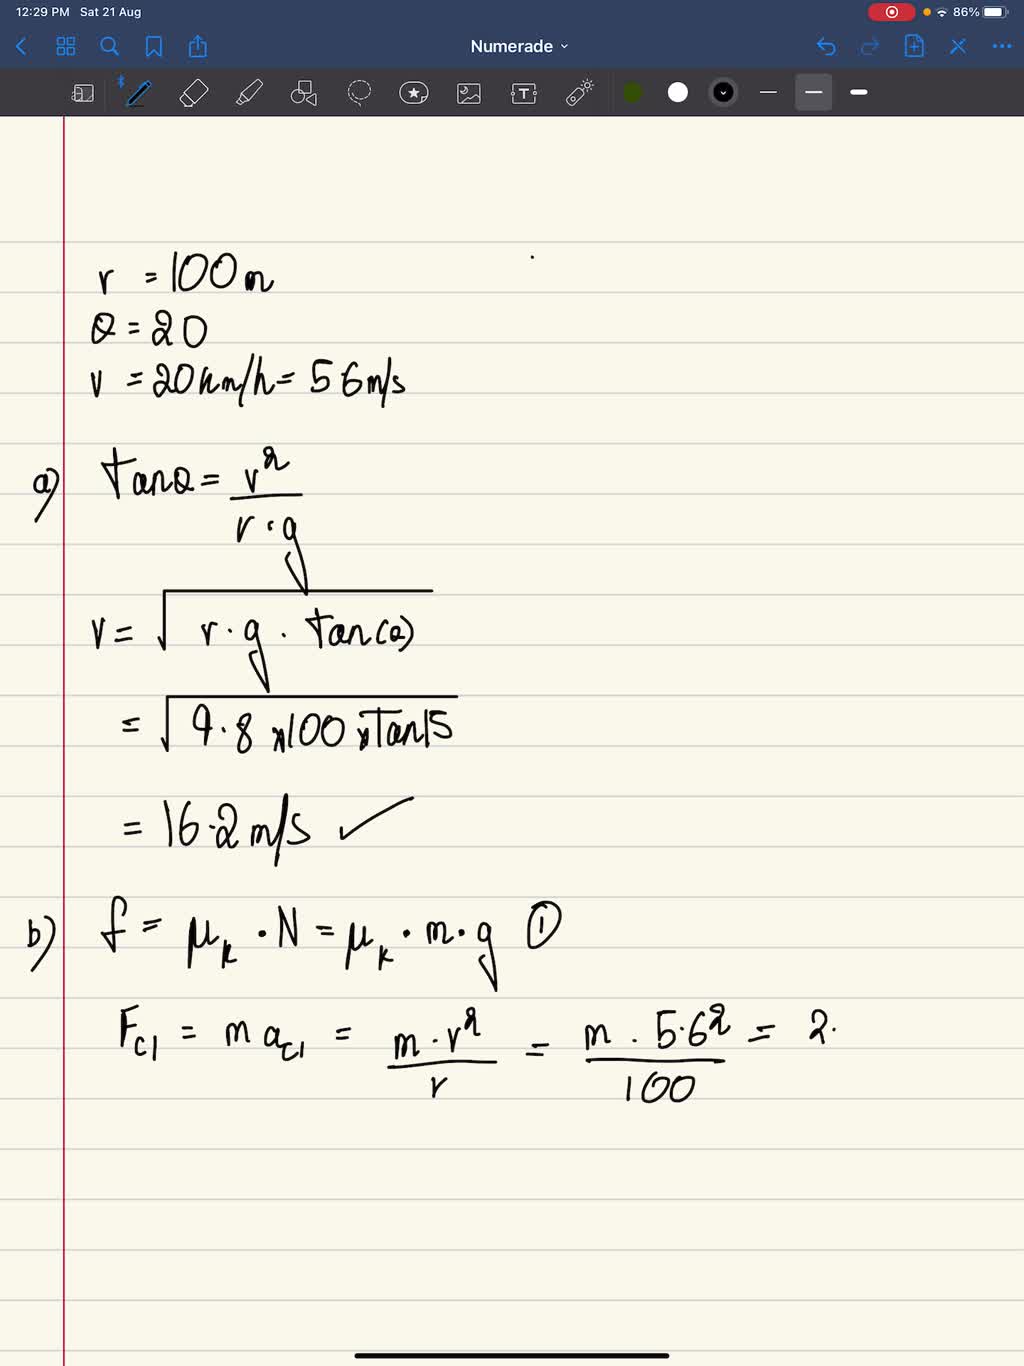 12:29 PM Sat 21 Aug 86%
Numerade
r = 100m
θ = 20
v = 20km/h = 56m/s
a) tanθ = v² / r·g
v = √ r·g·tan(θ)
= √ 9.8 x100 xTan15
= 16.2 m/s ✓
b) f = μk · N = μk · m · g ①
Fc1 = m ac1 = m·v² / r = m . 5.6² / 100 = 2.